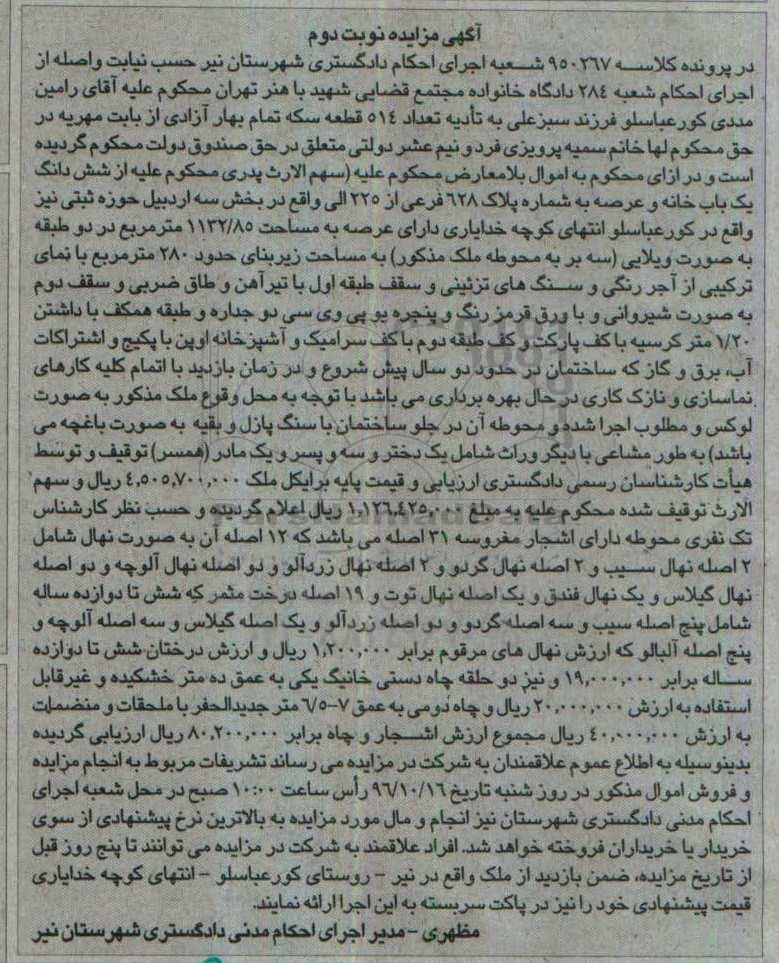 آگهی مزایده نوبت دوم
در پرونده کلاسه ۹۵۰۲۶۷ شعبه اجرای احکام دادگستری شهرستان نیر حسب نیابت واصله از
اجرای احکام شعبه ۲۸۴ دادگاه خانواده مجتمع قضایی شهید با هنر تهران محکوم علیه آقای رامین
مددی کورعباسلو فرزند سبزعلی به تأدیه تعداد ۵۱۴ قطعه سکه تمام بهار آزادی از بابت مهریه در
حق محکوم لها خانم سمیه پرویزی فرد و نیم عشر دولتی متعلق در حق صندوق دولت محکوم گردیده
است و در ازای محکوم به اموال بلامعارض محکوم علیه (سهم الارث پدری محکوم علیه از شش دانگ
یک باب خانه و عرصه به شماره پلاک ۶۲۸ فرعی از ۲۲۵ الی واقع در بخش سه اردبیل حوزه ثبتی نیز
واقع در کورعباسلو انتهای کوچه خدایاری دارای عرصه به مساحت ۱۱۳۲/۸۵ مترمربع در دو طبقه
به صورت ویلایی (سه بر به محوطه ملک مذکور) به مساحت زیربنای حدود ۲۸۰ مترمربع با نمای
ترکیبی از آجر رنگی و سنگ های تزئینی و سقف طبقه اول با تیرآهن و طاق ضربی و سقف دوم
به صورت شیروانی و با ورق قرمز رنگ و پنجره یو پی وی سی دو جداره و طبقه همکف با داشتن
۱/۲۰ متر کرسیه با کف پارکت و کف طبقه دوم با کف سرامیک و آشپزخانه اوپن با پکیج و اشتراکات
آب، برق و گاز که ساختمان در حدود دو سال پیش شروع و در زمان بازدید با اتمام کلیه کارهای
نماسازی و نازک کاری در حال بهره برداری می باشد با توجه به محل وقوع ملک مذکور به صورت
لوکس و مطلوب اجرا شده و محوطه آن در جلو ساختمان با سنگ پازل و بقیه به صورت باغچه می
باشد) به طور مشاعی با دیگر وراث شامل یک دختر و سه و پسر و یک مادر (همسر) توقیف و توسط
هیأت کارشناسان رسمی دادگستری ارزیابی و قیمت پایه برایکل ملک ۴,۵۰۵,۷۰۰,۰۰۰ ریال و سهم
الارث توقیف شده محکوم علیه به مبلغ ۱,۱۲۶,۴۲۵,۰۰۰ ریال اعلام گردیده و حسب نظر کارشناس
تک نفری محوطه دارای اشجار مغروسه ۳۱ اصله می باشد که ۱۲ اصله آن به صورت نهال شامل
۲ اصله نهال سیب و ۲ اصله نهال گردو و ۲ اصله نهال زردآلو و دو اصله نهال آلوچه و دو اصله
نهال گیلاس و یک نهال فندق و یک اصله نهال توت و ۱۹ اصله درخت مثمر که شش تا دوازده ساله
شامل پنج اصله سیب و سه اصله گردو و دو اصله زردآلو و یک اصله گیلاس و سه اصله آلوچه و
پنج اصله آلبالو که ارزش نهال های مرقوم برابر ۱,۲۰۰,۰۰۰ ریال و ارزش درختان شش تا دوازده
ساله برابر ۱۹,۰۰۰,۰۰۰ و نیز دو حلقه چاه دستی خانیگ یکی به عمق ده متر خشکیده و غیرقابل
استفاده به ارزش ۲۰,۰۰۰,۰۰۰ ریال و چاه دومی به عمق ۷-۶/۵ متر جدیدالحفر با ملحقات و منضمات
به ارزش ۴۰,۰۰۰,۰۰۰ ریال مجموع ارزش اشجار و چاه برابر ۸۰,۲۰۰,۰۰۰ ریال ارزیابی گردیده
بدینوسیله به اطلاع عموم علاقمندان به شرکت در مزایده می رساند تشریفات مربوط به انجام مزایده
و فروش اموال مذکور در روز شنبه تاریخ ۹۶/۱۰/۱۶ رأس ساعت ۱۰:۰۰ صبح در محل شعبه اجرای
احکام مدنی دادگستری شهرستان نیز انجام و مال مورد مزایده به بالاترین نرخ پیشنهادی از سوی
خریدار یا خریداران فروخته خواهد شد. افراد علاقمند به شرکت در مزایده می توانند تا پنج روز قبل
از تاریخ مزایده، ضمن بازدید از ملک واقع در نیر - روستای کورعباسلو - انتهای کوچه خدایاری
قیمت پیشنهادی خود را نیز در پاکت سربسته به این اجرا ارائه نمایند.
مظهری - مدیر اجرای احکام مدنی دادگستری شهرستان نیر